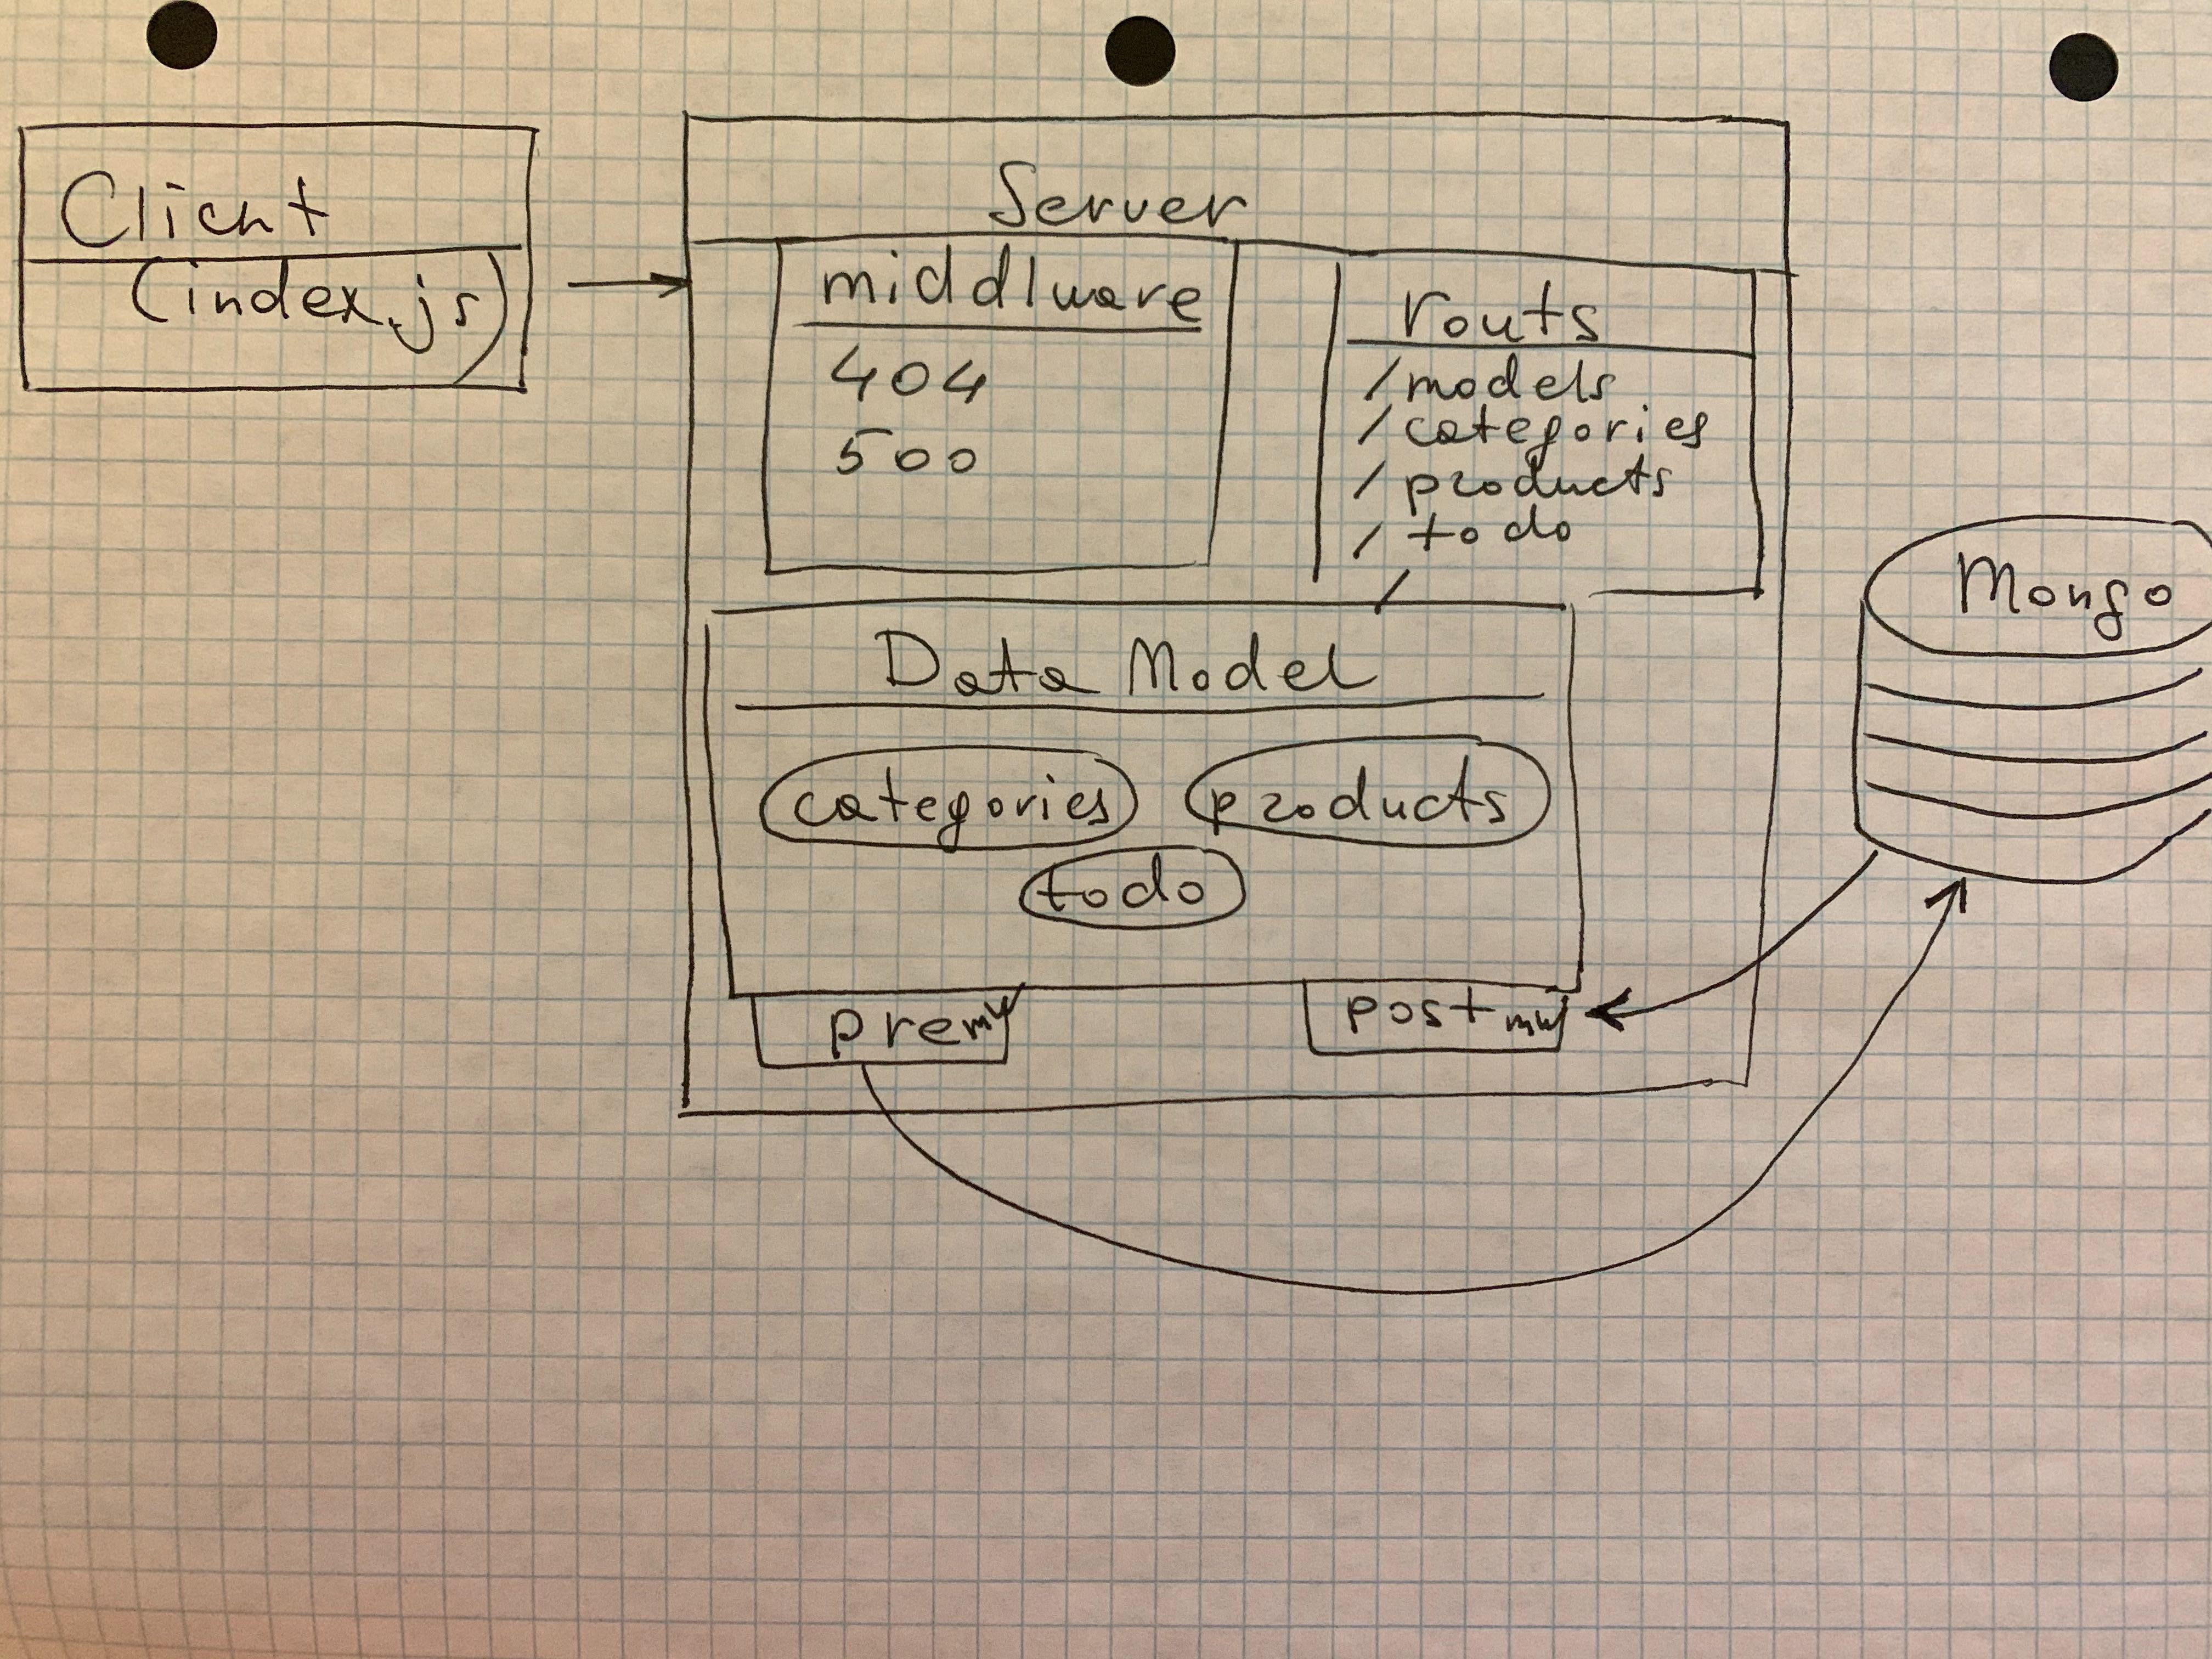 Client
(index.js)
Server
middlware
404
500
routs
/models
/categories
/products
/todo
/
Mongo
Data Model
categories
products
todo
pre mw
post mw